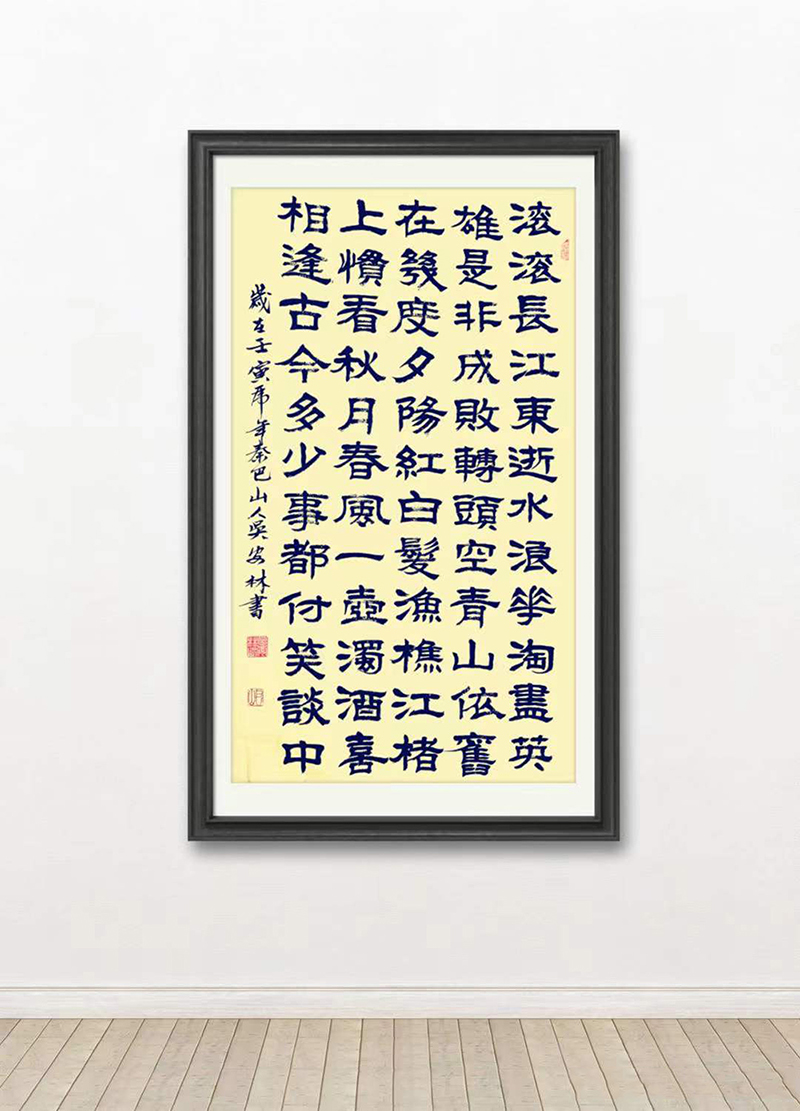 滚滚長江東逝水浪花淘盡英
雄是非成敗轉頭空青山依舊
在幾度夕陽紅白髮漁樵江楮
上慣看秋月春風一壺濁酒喜
相逢古今多少事都付笑談中
歲在壬寅虎年秦巴山人吳安林書